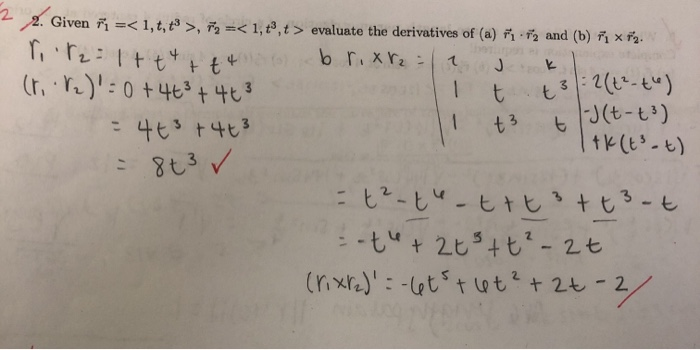 2
2. Given r⃗₁ =< 1, t, t³ >, r⃗₂ =< 1, t³, t > evaluate the derivatives of (a) r⃗₁ · r⃗₂ and (b) r⃗₁ × r⃗₂.
r₁ · r₂ = 1 + t⁴ + t⁴
(r₁ · r₂)' = 0 + 4t³ + 4t³
= 4t³ + 4t³
= 8t³ ✓
b r₁ x r₂ = | î J K |
| 1 t t³ | = î(t²-t⁶)
| 1 t³ t | -J(t-t³)
+K(t³-t)
= t² - t⁶ - t + t³ + t³ - t
= -t⁶ + 2t³ + t² - 2t
(r₁xr₂)' = -6t⁵ + 6t² + 2t - 2 /